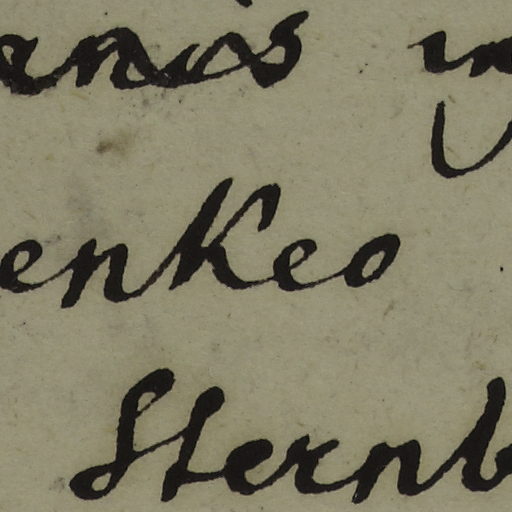 anis in
enkeo
Sternb